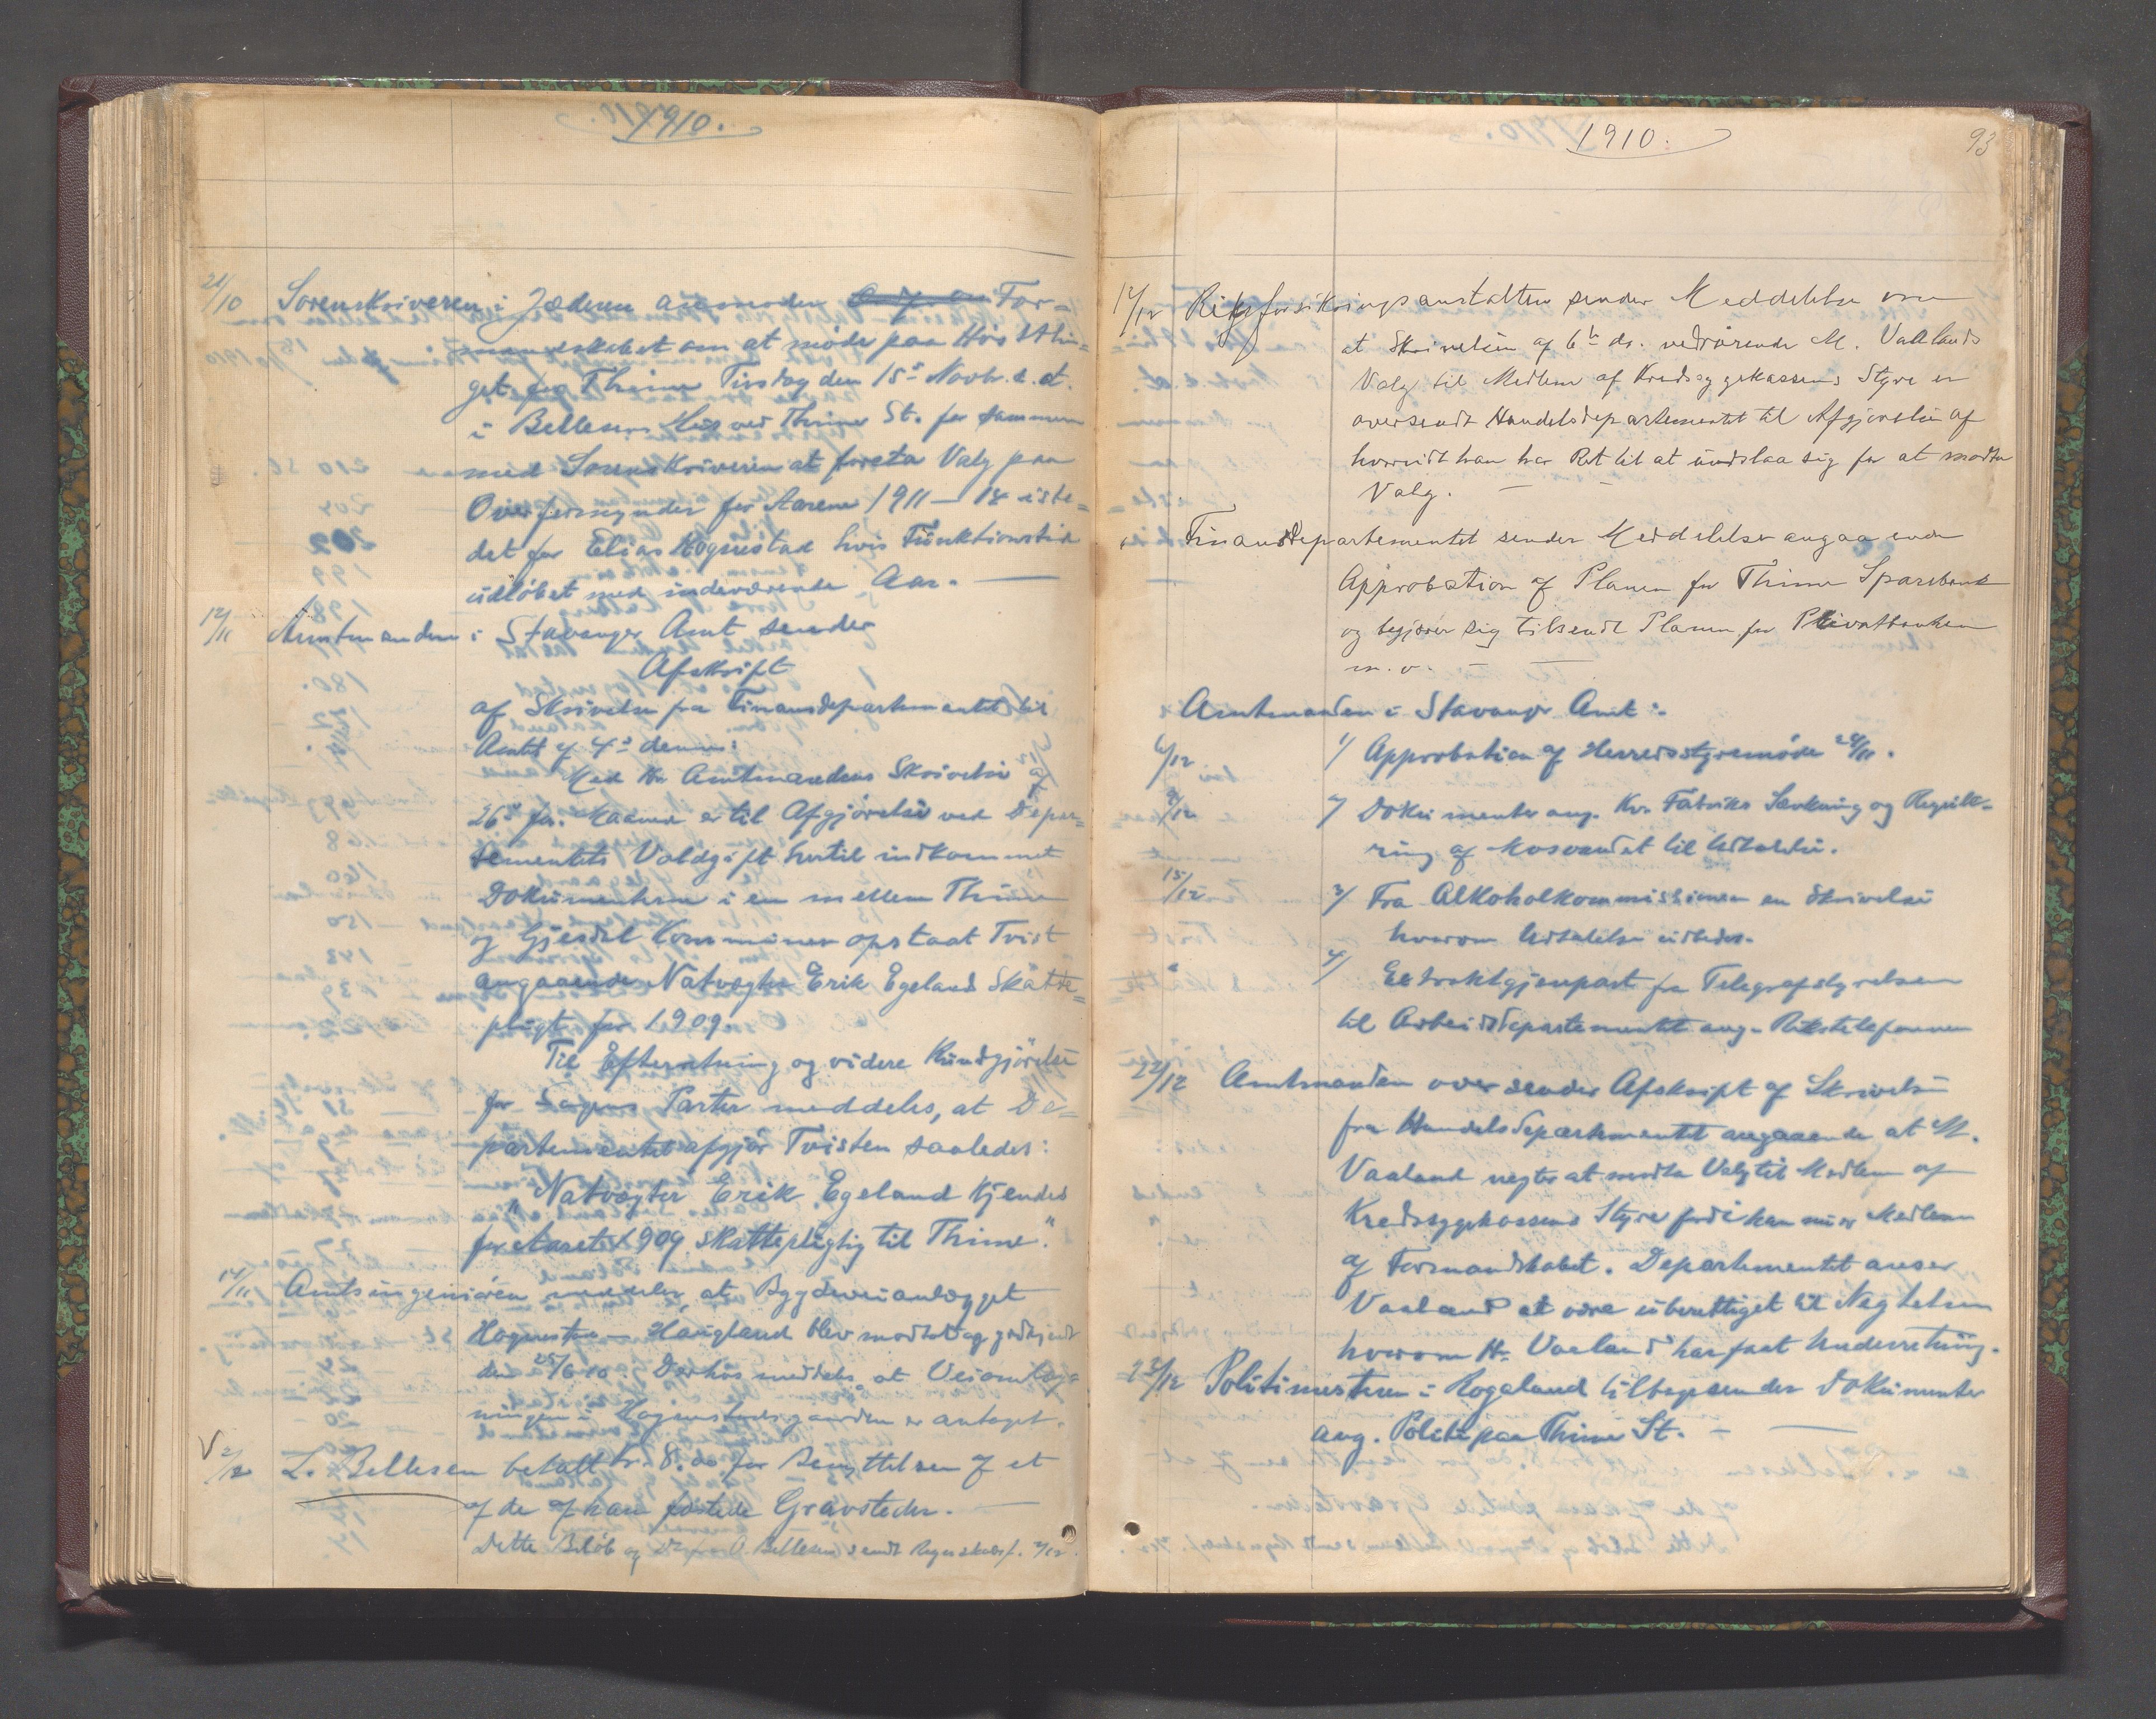 1910.
21/10 Sorenskriveren i Jæderen anmoder For-
mandskabet om at møde paa Høstthin-
get for Thime Tirsdag den 15de Novbr. d. A.
i Bellesens Hus ved Thime St. for sammen
med Sorenskriveren at foreta Valg paa
Overformynder for Aarene 1911— iste-
det for Elias Hognestad hvis Funktionstid
udløbet med indeværende Aar. —
12/11 Amtmanden i Stavanger Amt sender
Afskrift
af Skrivelse fra Finansdepartementet til
Amtet af 4de dennes:
Med Hr. Amtmandens Skrivelse af
26de f. Maaned er til Afgjørelse ved Depar-
tementets Voldgift hertil indkommet
Dokumenterne i en mellem Thime
og Gjesdal Kommuner opstaat Tvist
angaaende Natvægter Erik Egeland Skatte-
pligt for 1909.
Til Efterretning og videre Kundgjørelse
for Sagens Parter meddeles, at De-
partementet afgjør Tvisten saaledes:
"Natvægter Erik Egeland kjendes
for Aaret 1909 skattepligtig til Thime."
14/11 Amtsingeniøren meddeler, at Bygdeveianlægget
Hognestad — Haugland blev modtat og godkjendt
den 25/6 10. Derhos meddeles at Veiomlæg-
ningen i Hognestadsgaarden er antaget.
V 2/12 L. Bellesen betalt kr. 8.00 for Benyttelsen af et
af de af ham fæstede Gravsteder. —
Dette Beløb og Bellesen sendt Regnskabsf. 2/12.
1910.
93
12/12 Riksforsikringsanstalten sender Meddelelse om
at Skrivelsen af 6te ds. vedrørende M. Vaalands
Valg til Medlem af Kredssygekassens Styre er
oversendt Handelsdepartementet til Afgjørelse af
hvorvidt han har Ret til at undslaa sig for at modta
Valg. — —
" Finansdepartementet sender Meddelelse angaaende
Approbation af Planen for Thime Sparebank
og begjærer sig tilsendt Planen for Privatbanken
m. v. — —
Amtmanden i Stavanger Amt:
6/12 1/ Approbation af Herredsstyremøde 26/11.
9/12 2/ Dokumenter ang. Kv. Fabriks Sænkning og Regule-
ring af Mosvandet til Udtalelse.
15/12 3/ Fra Alkoholkommissionen en Skrivelse
hvorom Udtalelse udbedes.
" 4/ Extraktgjenpart fra Telegrafstyrelsen
til Arbeidsdepartementet ang. Rikstelefonen
22/12 Amtmanden oversender Afskrift af Skrivelse
fra Handelsdepartementet angaaende at M.
Vaaland negter at modta Valg til Medlem af
Kredssygekassens Styre fordi han nu er Medlem
af Formandskabet. Departementet anser
Vaaland at være uberettiget til Negtelsen
hvorom Hr. Vaaland har faat Underretning.
22/12 Politimesteren i Rogaland tilbagesender Dokumenter
ang. Politi paa Thime St. — —